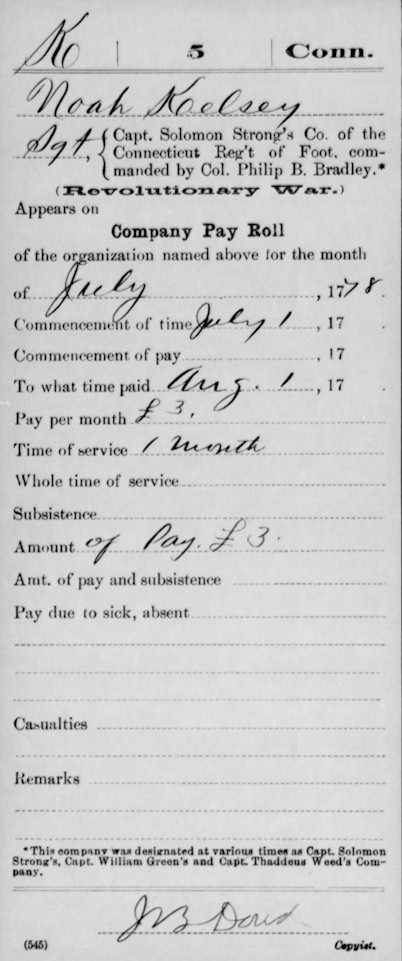 K | 5 | Conn.
Noah Kelsey
Sgt., { Capt. Solomon Strong's Co. of the
Connecticut Reg't of Foot, com-
manded by Col. Philip B. Bradley.*
(Revolutionary War.)
Appears on
Company Pay Roll
of the organization named above for the month
of July, 1778.
Commencement of time July 1, 17
Commencement of pay, 17
To what time paid Aug. 1, 17 .
Pay per month £ 3.
Time of service 1 month
Whole time of service
Subsistence
Amount of Pay. £ 3.
Amt. of pay and subsistence
Pay due to sick, absent
Casualties
Remarks
*This company was designated at various times as Capt. Solomon
Strong's, Capt. William Green's and Capt. Thaddeus Weed's Com-
pany.
J B
(545) Copyist.